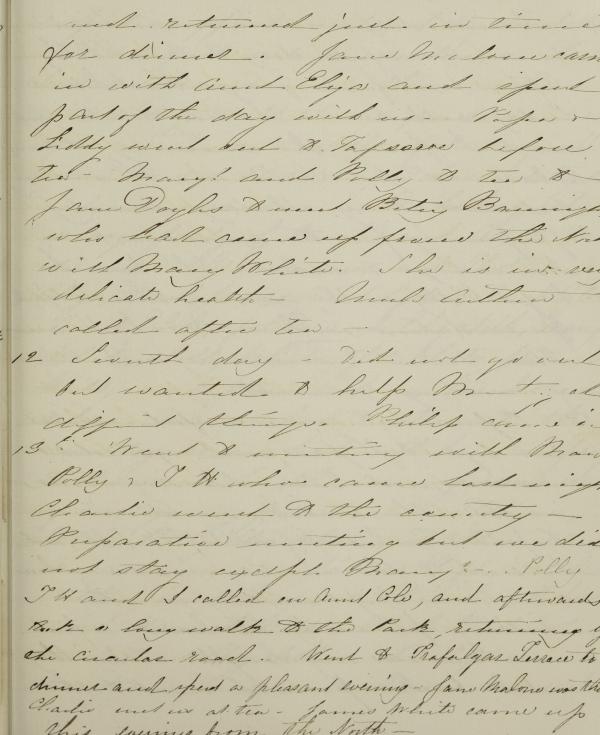 and returned just in time
for dinner. Jane Malone came
in with Aunt Eliza and spent
part of the day with us - Papa &
Liddy went out to before
tea - Mary and Polly to tea to
Jane Doyles to meet Betsy
who had come up from the North
with Mary White. She is in very
delicate health - Uncle Arthur
called after tea -
12 Seventh day - Did not go out
but wanted to help at
different things. Philip came in
13th Went to meeting with Mary
Polly & T H who came last night
Charlie went to the country -
Preparative meeting but we did
not stay except Mary - Polly
T H and I called on Aunt Cole, and afterwards
took a long walk to the Park, returning by
the circular road. Went to Trafalgar Terrace to
dinner and spent a pleasant evening - Jane Malone was there
Charlie met us at tea - James White came up
this evening from the North -